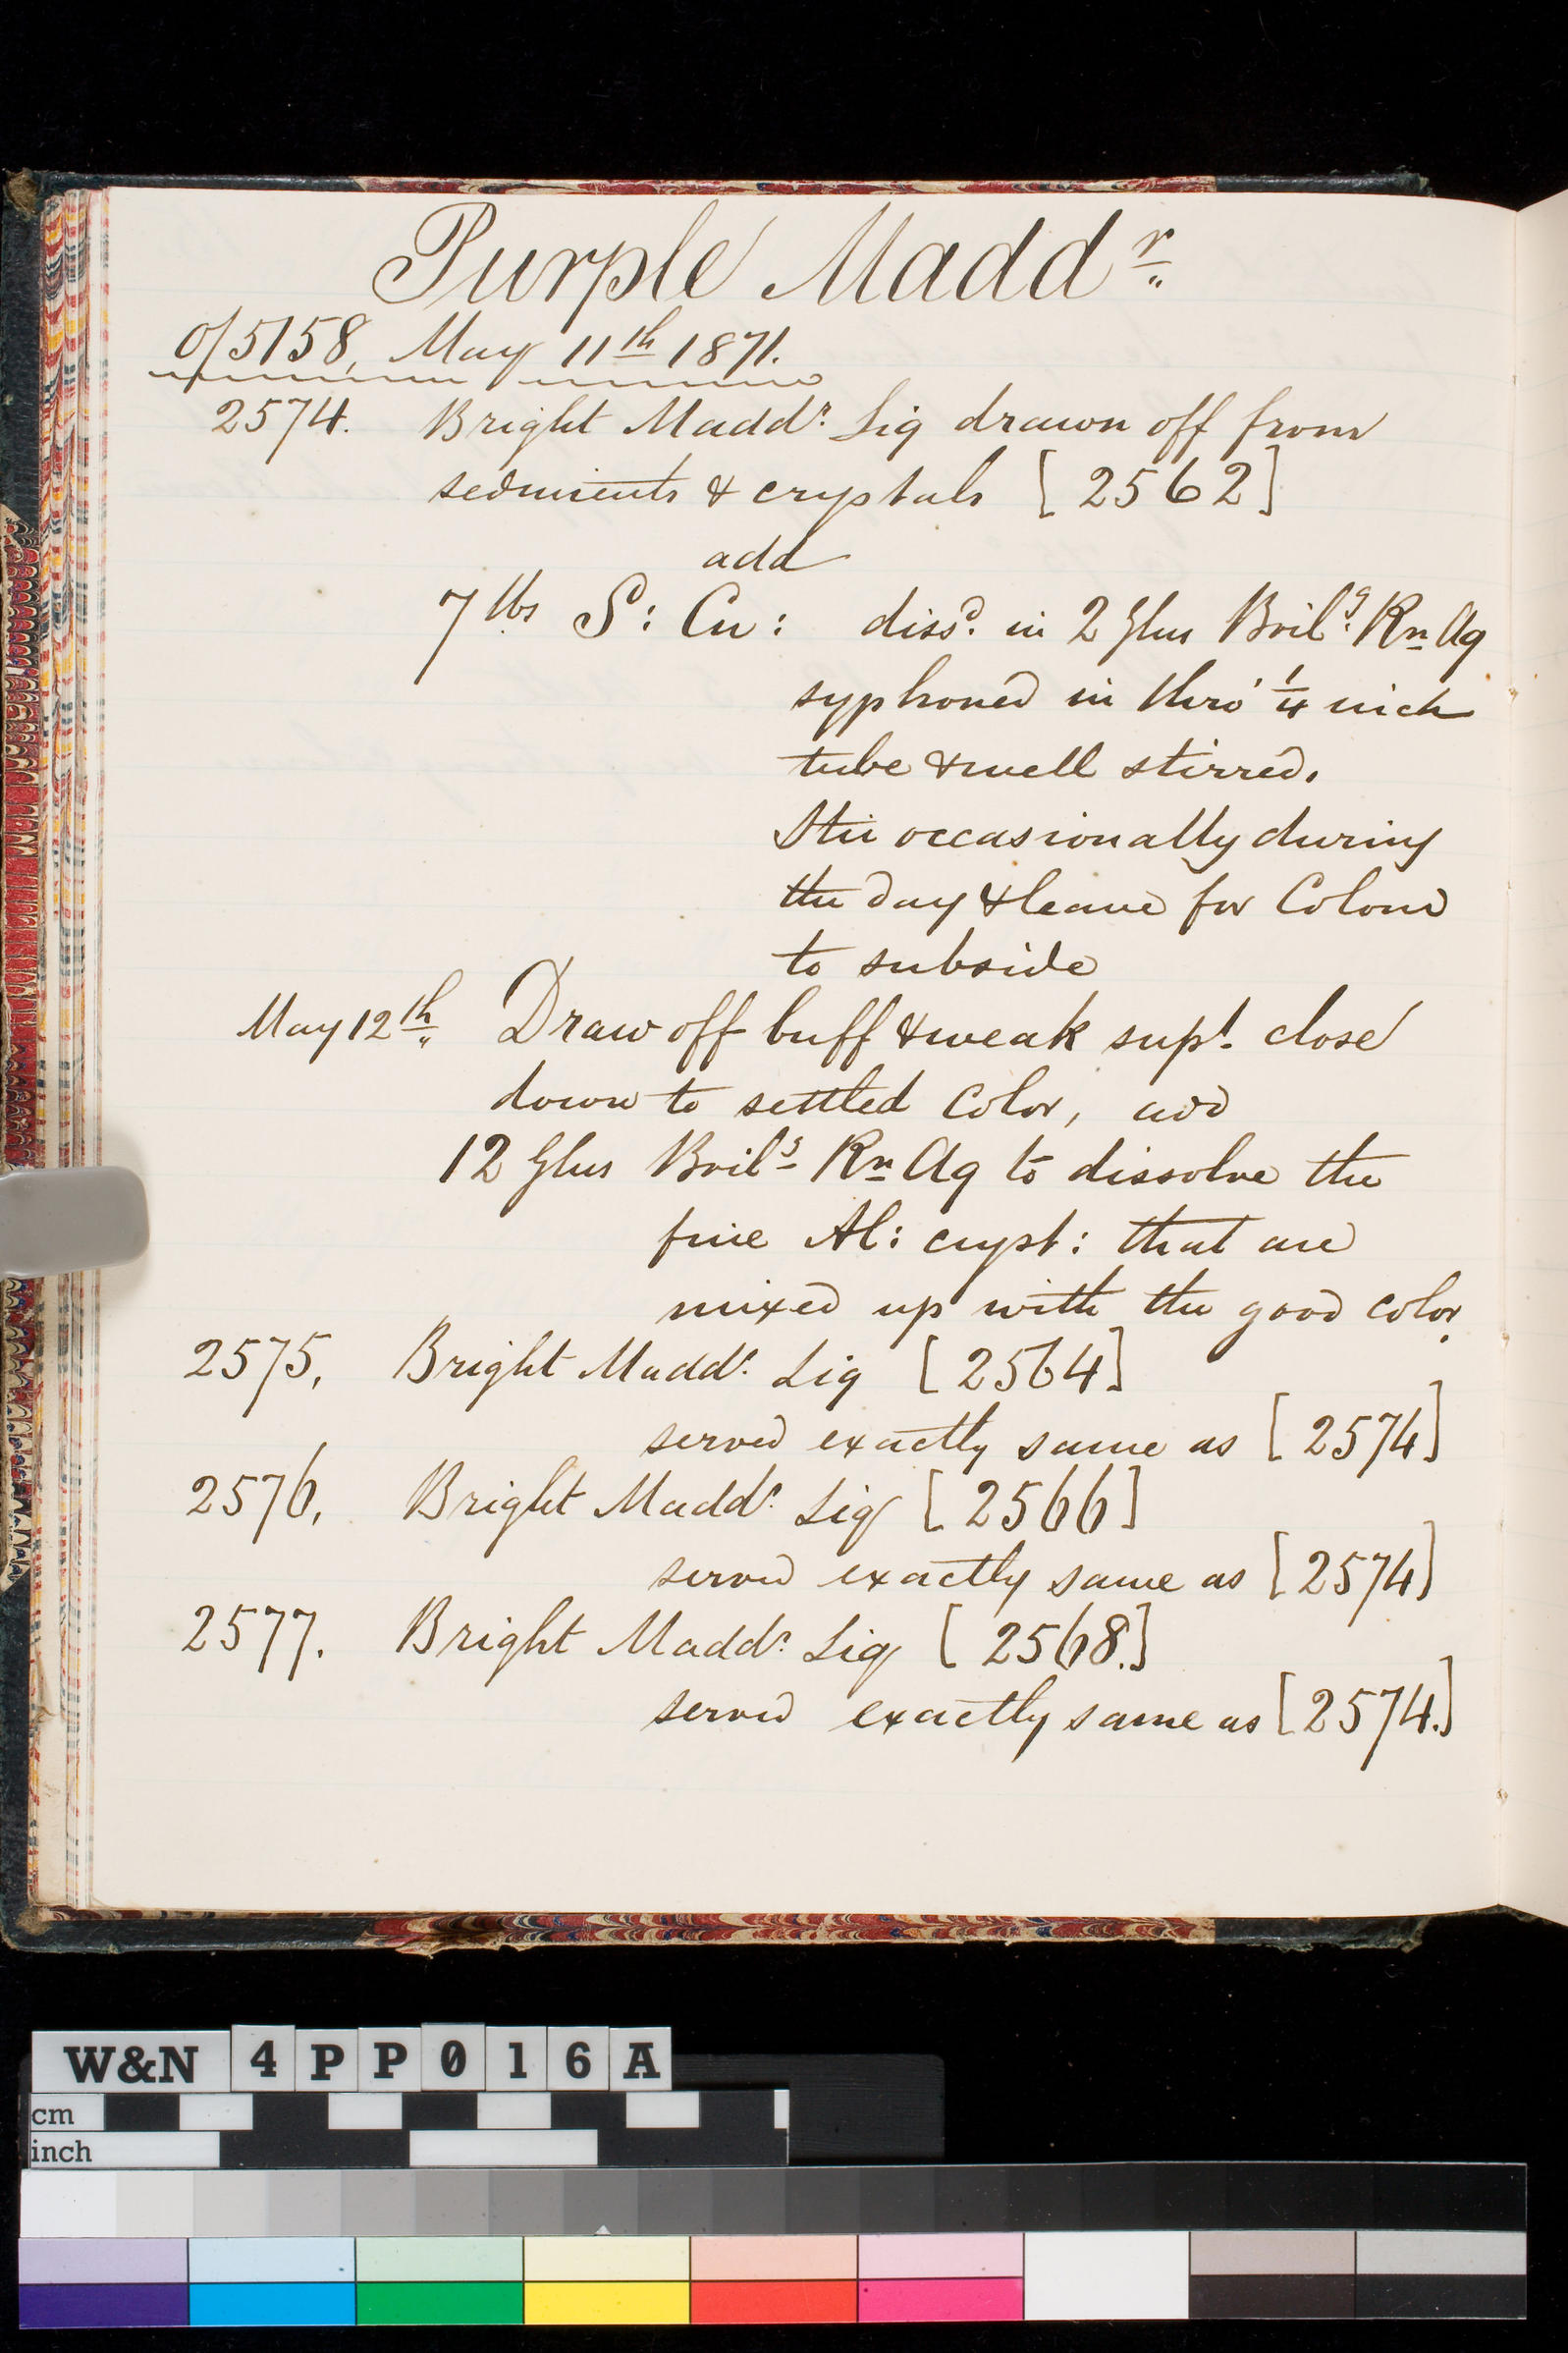 Purple Maddr
o/5158, May 11th 1871.
2574. Bright Maddr. Liq drawn off from
sediments & crystals [2562]
add
7 lbs S: Cu: dissd. in 2 Glns Boilg. Rn Aq
syphoned in thro' 1/4 inch
tube & well stirred.
Stir occasionally during
the day & leave for Colour
to subside
May 12th Draw off buff & weak supt. close
down to settled Color, add
12 Glns Boilg Rn Aq to dissolve the
fine Al: cryst: that are
mixed up with the good color.
2575, Bright Maddr. Liq [2564]
served exactly same as [2574]
2576, Bright Maddr. Liq [2566]
served exactly same as [2574]
2577. Bright Maddr. Liq [2568.]
served exactly same as [2574.]
W&N 4PP016A
cm
inch